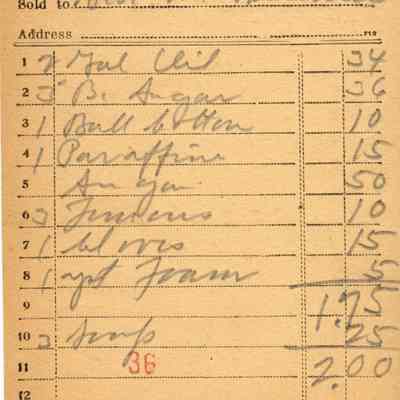 Sold to
Address
1 2 Gal Oil 34
2 3 B. Sugar 36
3 1 Ball Cotton 10
4 1 Paraffine 15
5 Sugar 50
6 3 Lemons 10
7 1 Cloves 15
8 1 Foam 5
9 1.75
10 Soap 25
11 36 2.00
12